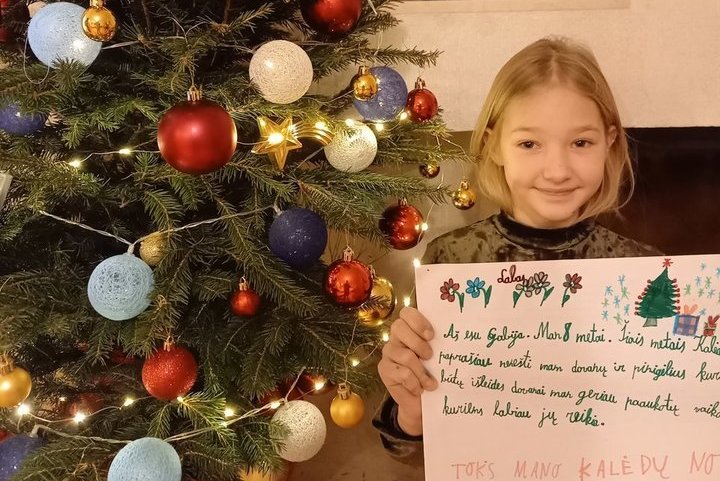 Labas
Aš esu Gabija. Man 8 metai. Šiais metais Kalė
paprašiau nevešti man dovanų ir pinigėlius kur
būtų išleidęs dovanai man geriau paaukotų vaik
kuriems labiau jų reikia.
TOKS MANO KALĖDŲ NO